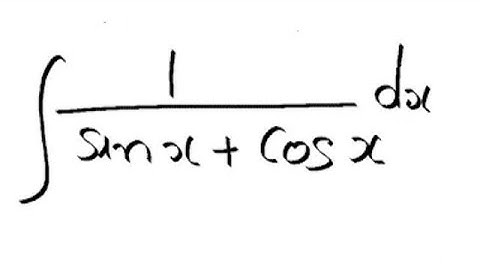 ∫ 1/(sin x + cos x) dx